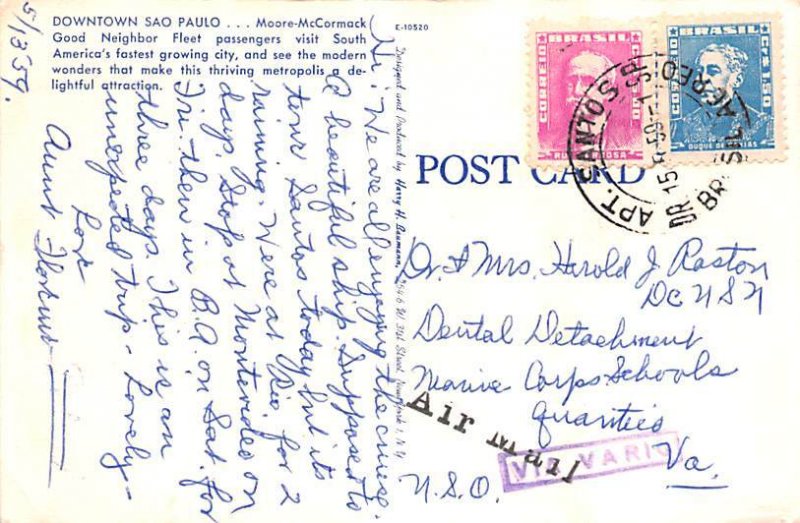 5/13'59.
DOWNTOWN SAO PAULO . . . Moore-McCormack
Good Neighbor Fleet passengers visit South
America's fastest growing city, and see the modern
wonders that make this thriving metropolis a de-
lightful attraction.
E-10520
Hi! We are all enjoying the cruise.
A beautiful ship. Supposed to
tour Santos today but its
raining. Were at Rio for 2
days. Stop at Montevideo on
Fri. then in B.A. on Sat. for
three days. This is an
unexpected trip - Lovely -
Love
Aunt
Designed and Produced by Harry H. Baumann, West 34th Street, New York 1, N.Y.
BRASIL CORREIO
RUI BARBOSA
BRASIL CORREIO
CR$ 1,50
DUQUE DE CAXIAS
SANTOS
BRASIL
POST CARD
Dr. & Mrs. Harold J. Raston
DC USN
Dental Detachment
Marine Corps Schools
Quantico
Va.
U.S.A.
Air Mail
VIA VARIG